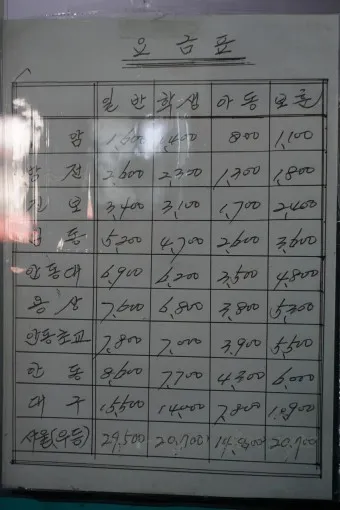 요금표
일반 학생 아동 보훈
암 1,600 1,400 800 1,100
전 2,600 2,300 1,300 1,800
3,400 3,100 1,700 2,400
동 5,200 4,700 2,600 3,600
안동대 6,900 6,200 3,500 4,800
용상 7,600 6,800 3,800 5,300
안동초교 7,800 7,000 3,900 5,500
안동 8,600 7,700 4,300 6,000
대구 15,500 14,000 7,800
서울(우등) 29,500 20,700 20,700